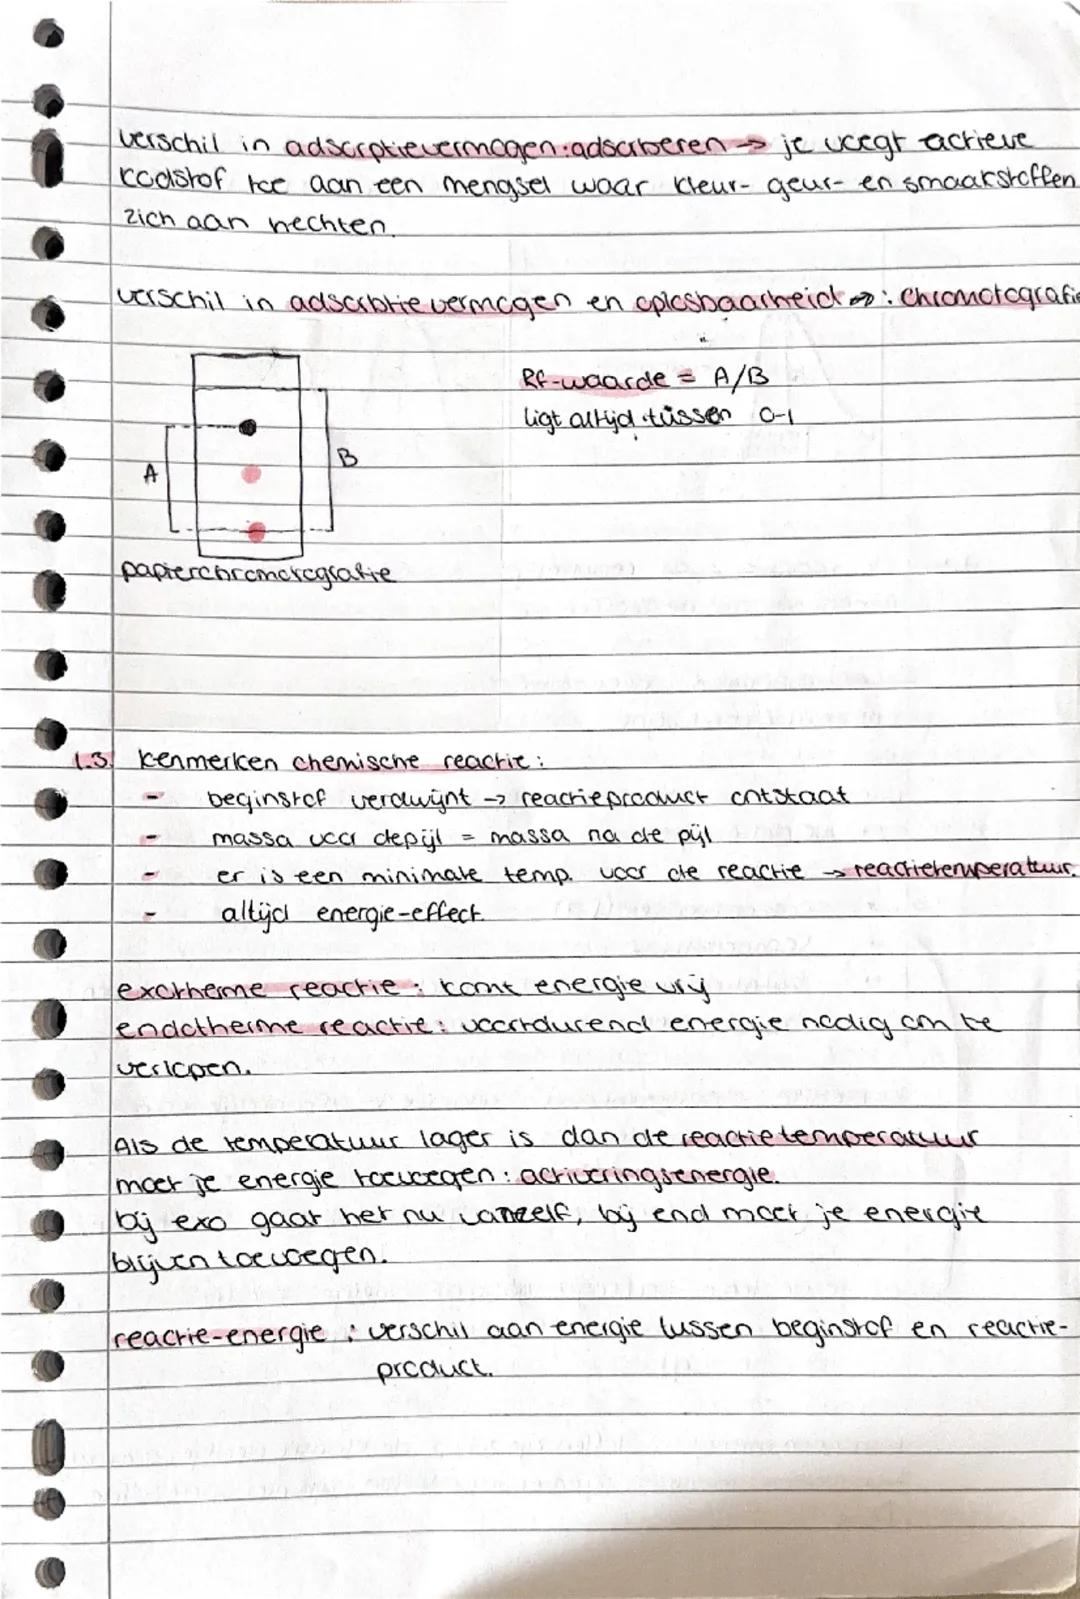 verschil in adsorptievermogen: adsorberen → je voegt actieve
koolstof toe aan een mengsel waar kleur- geur- en smaakstoffen
zich aan hechten.
verschil in adsorbtievermogen en oplosbaarheid →: Chromotografie
Rf-waarde = A/B
ligt altijd tussen 0-1
A
B
papierchromotografie
1.3. kenmerken chemische reactie:
- beginstof verdwijnt → reactieproduct ontstaat
- massa voor de pijl = massa na de pijl
- er is een minimale temp. voor de reactie → reactietemperatuur.
- altijd energie-effect.
exotherme reactie: komt energie vrij
endotherme reactie: voortdurend energie nodig om te
verlopen.
Als de temperatuur lager is dan de reactietemperatuur
moet je energie toevoegen: activeringsenergie.
bij exo gaat het nu vanzelf, bij end moet je energie
blijven toevoegen.
reactie-energie: verschil aan energie tussen beginstof en reactie-
product.